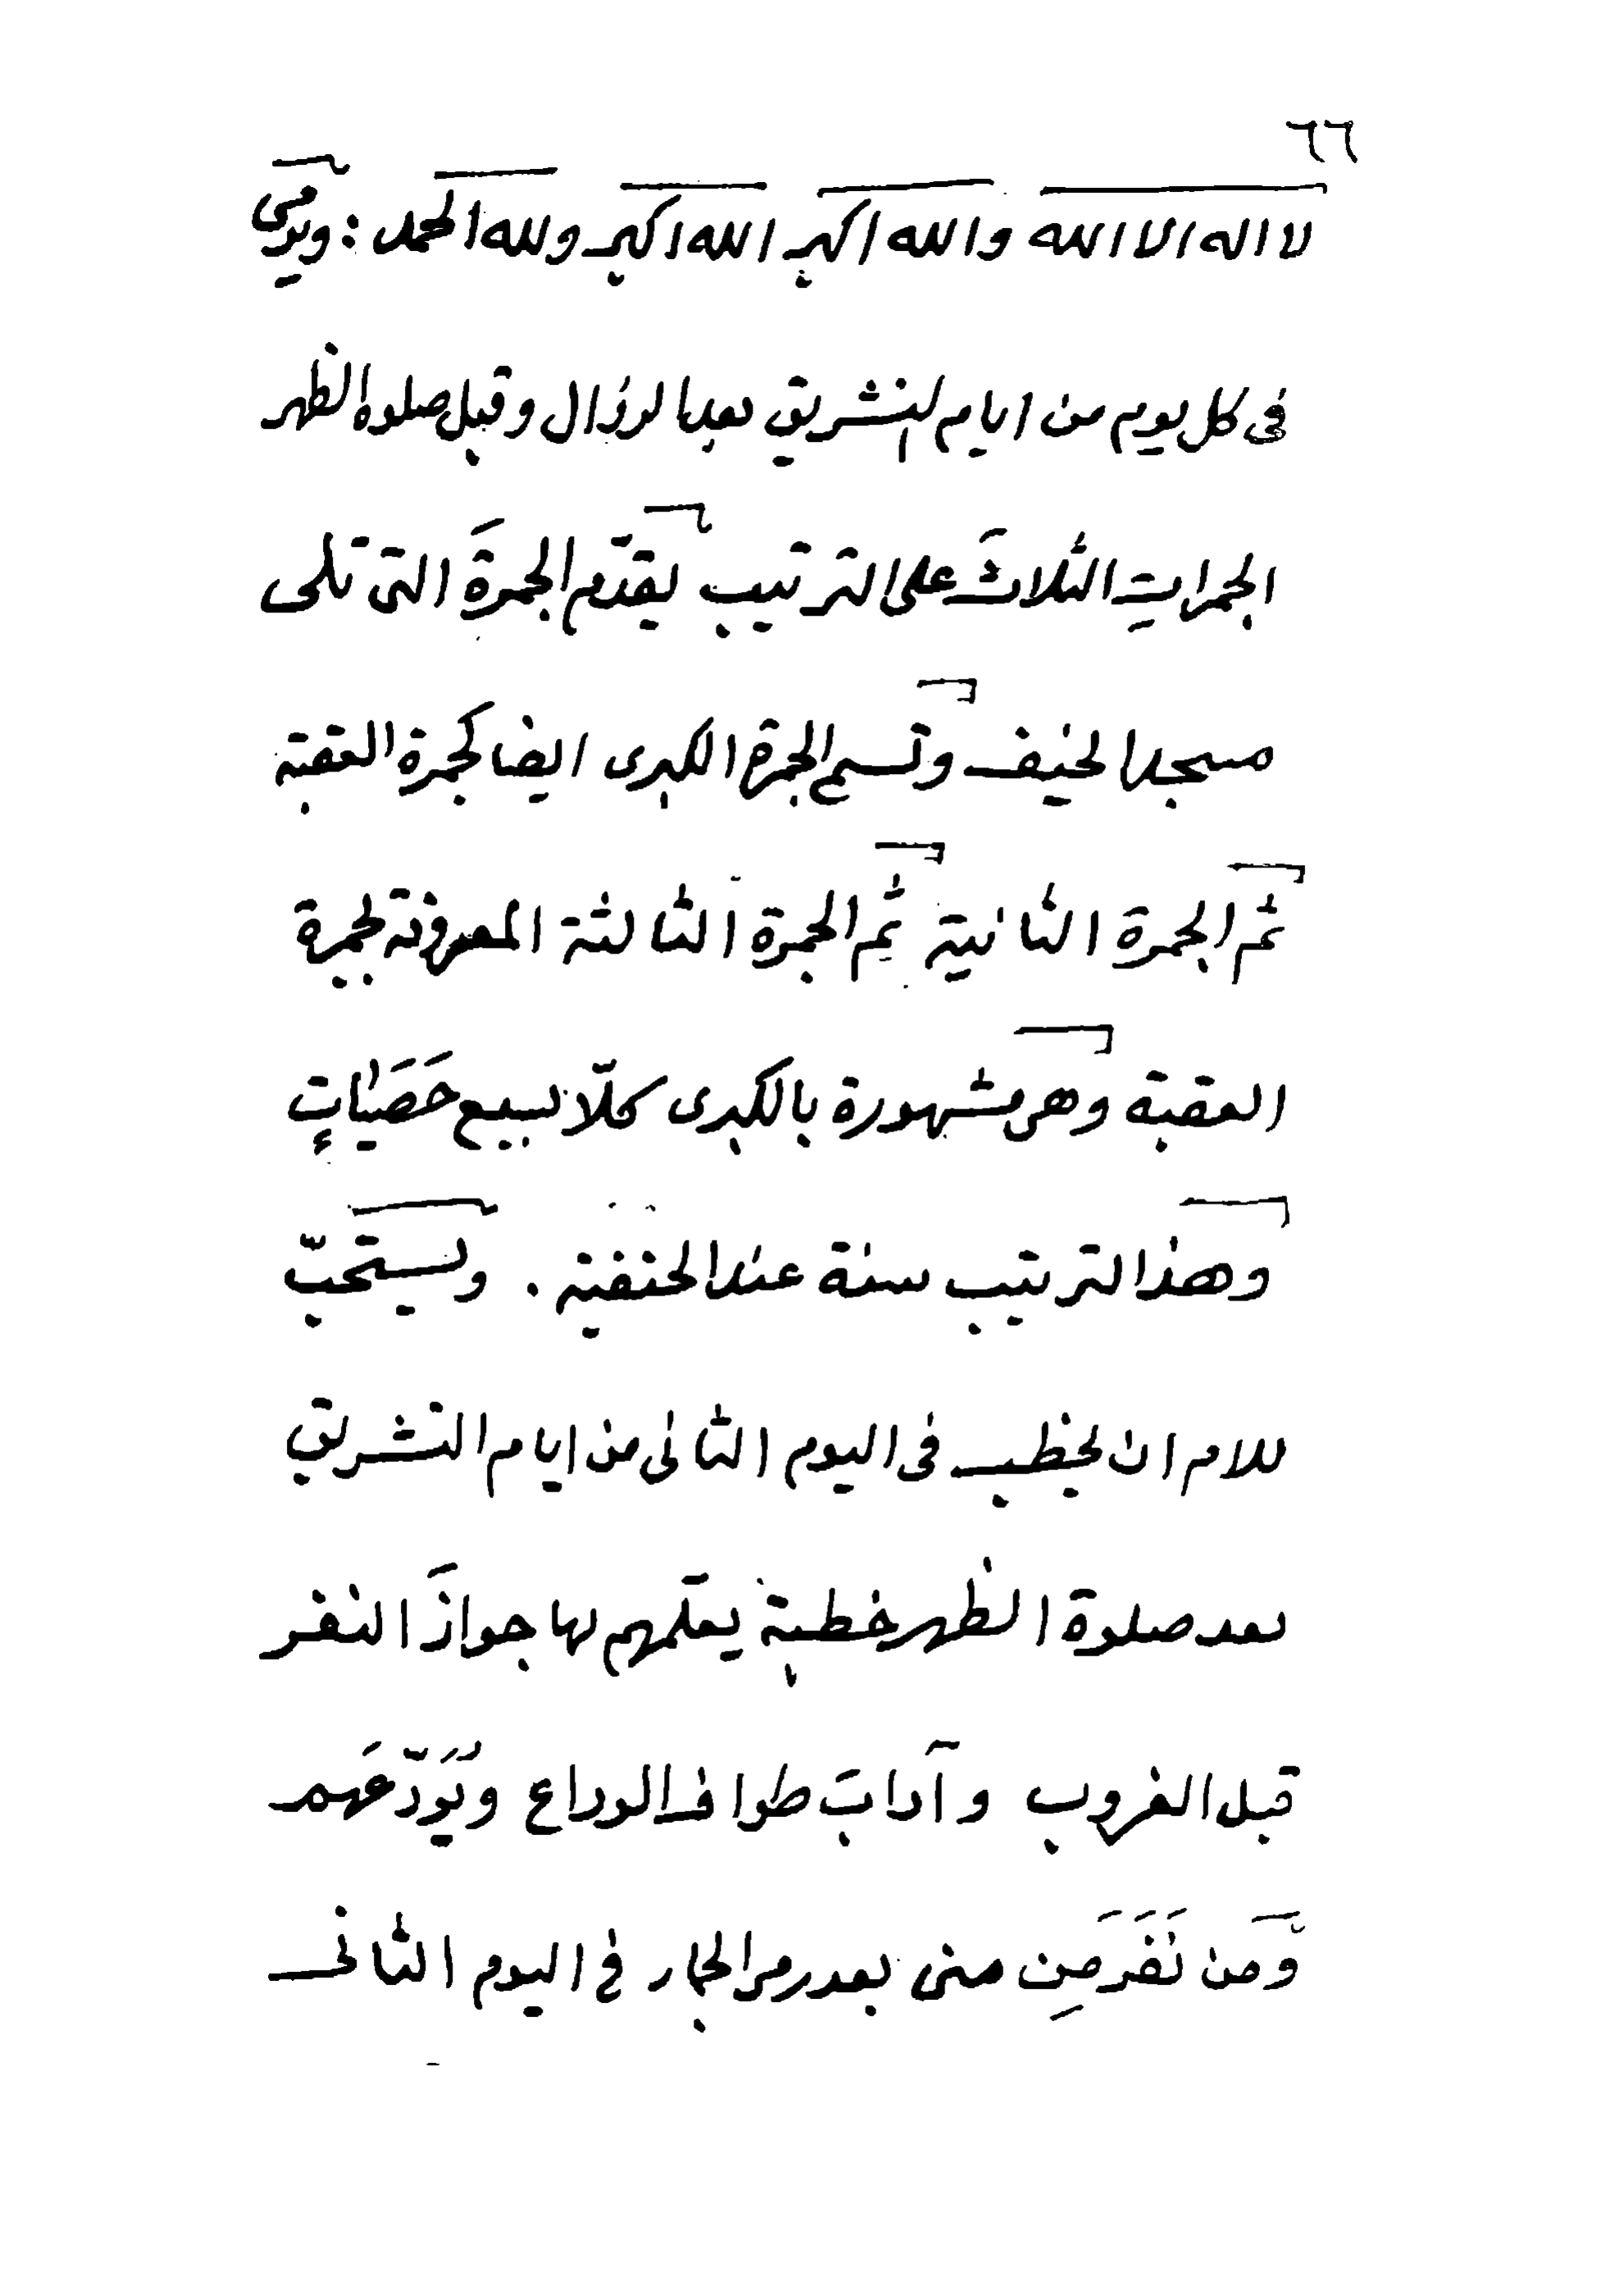 ٦٦
لا اله الا الله والله اكبر الله اكبر ولله الحمد : ويرمى
فى كل يوم من ايام التشريق بعد الزوال وقبل صلوة الظهر
الجمراتِ الثلاثَ على الترتيب يقدّم الجمرةَ التى تلى
مسجد الخيف وتسمى الجمرة الكبرى ايضا كجمرة العقبة
ثم الجمرة الثانية ثم الجمرة الثالثة المعروفة بجمرة
العقبة وهى مشهورة بالكبرى كلّا بسبع حَصَيَاتٍ
وهذا الترتيب سنة عند الحنفية . ويستحبّ
للامام ان يخطب فى اليوم الثانى من ايام التشريق
بعد صلوة الظهر خطبة يعلّمهم بها جوازَ النفر
قبل الغروب وآدابَ طواف الوداع ويُوَدّعَهم
ومن نَفَرَ مِن منى بعد رمى الجمار فى اليوم الثانى